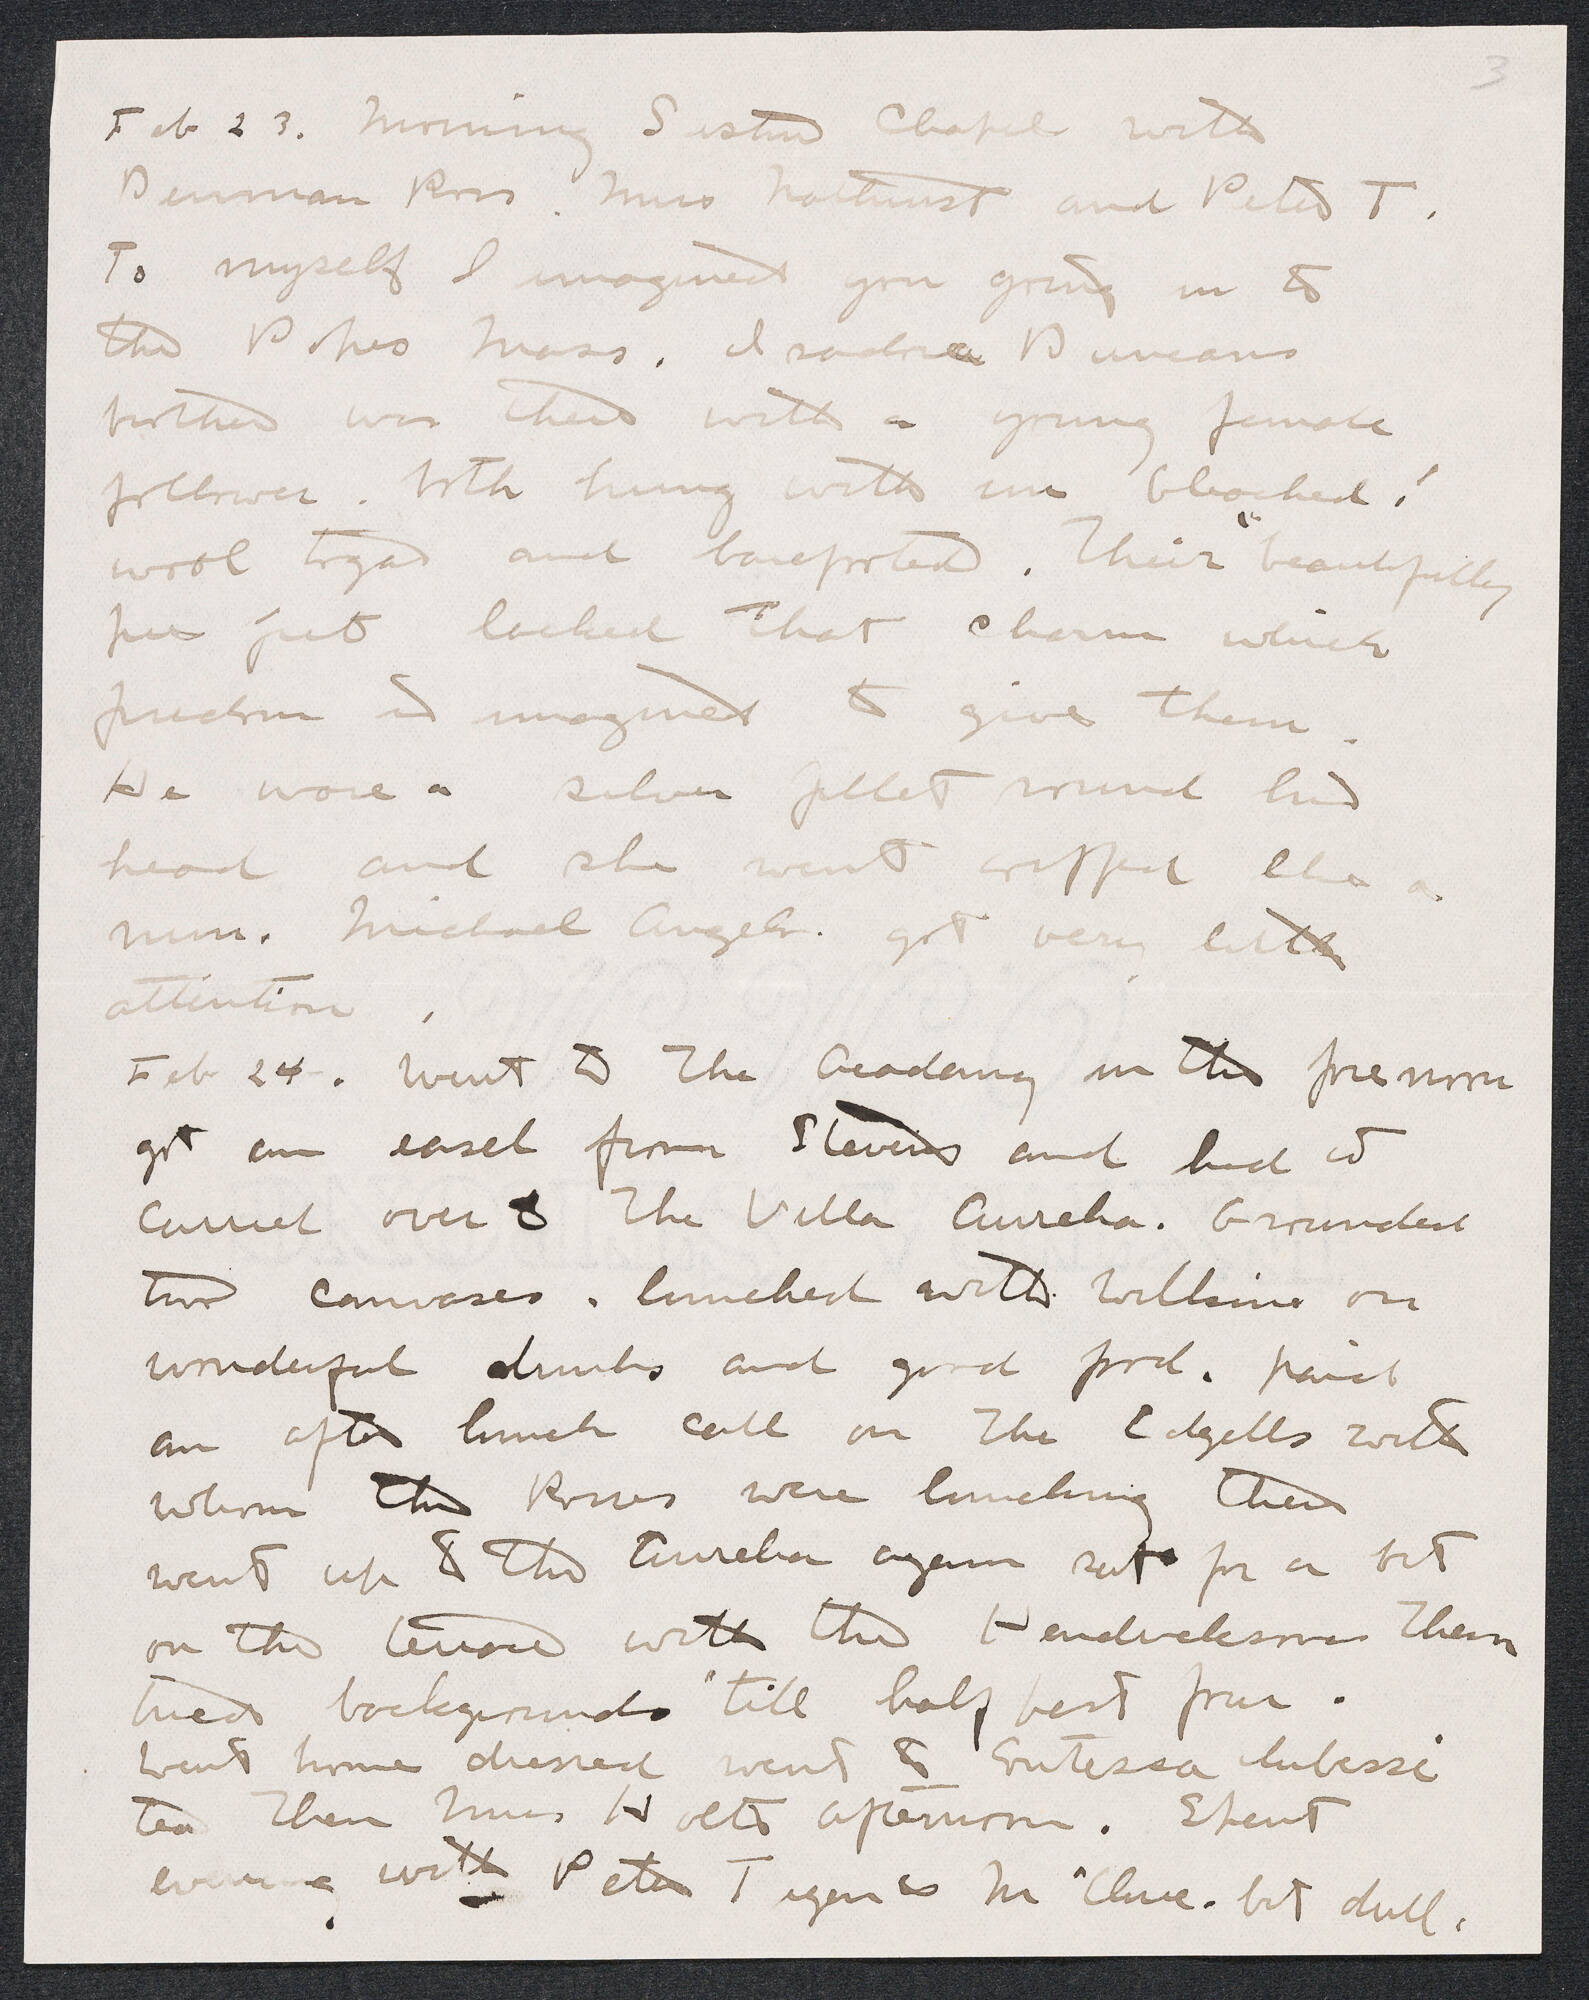 3
Feb 23. Morning Sistine Chapel with
Denman Ross. Miss Nathurst and Peter T.
To myself I imagined you going in to
the Popes Mass. Isadora Duncans
brother was there with a young female
follower. both hung with un bleached!
wool togas and barefooted. Their "beautifully
free feet" lacked that charm which
freedom is imagined to give them.
He wore a silver fillet round his
head and she went wiffed like a
nun. Michael Angelo. got very little
attention.
Feb 24. Went to the Academy in the forenoon
got an easel from Stevens and had it
carried over to the Villa Aurelia. Grounded
two canvases. lunched with Wilkins on
wonderful drinks and good food. paid
an after lunch call on the Edgells with
whom the Rosses were lunching then
went up to the Aurelia again sat for a bit
on the terrace with the Hendricksons then
tried backgrounds 'till half past four.
Went home dressed went to Contessa
tea then Miss Holts afternoon. Spent
evening with Peter T igen in M'Clure. bit dull.